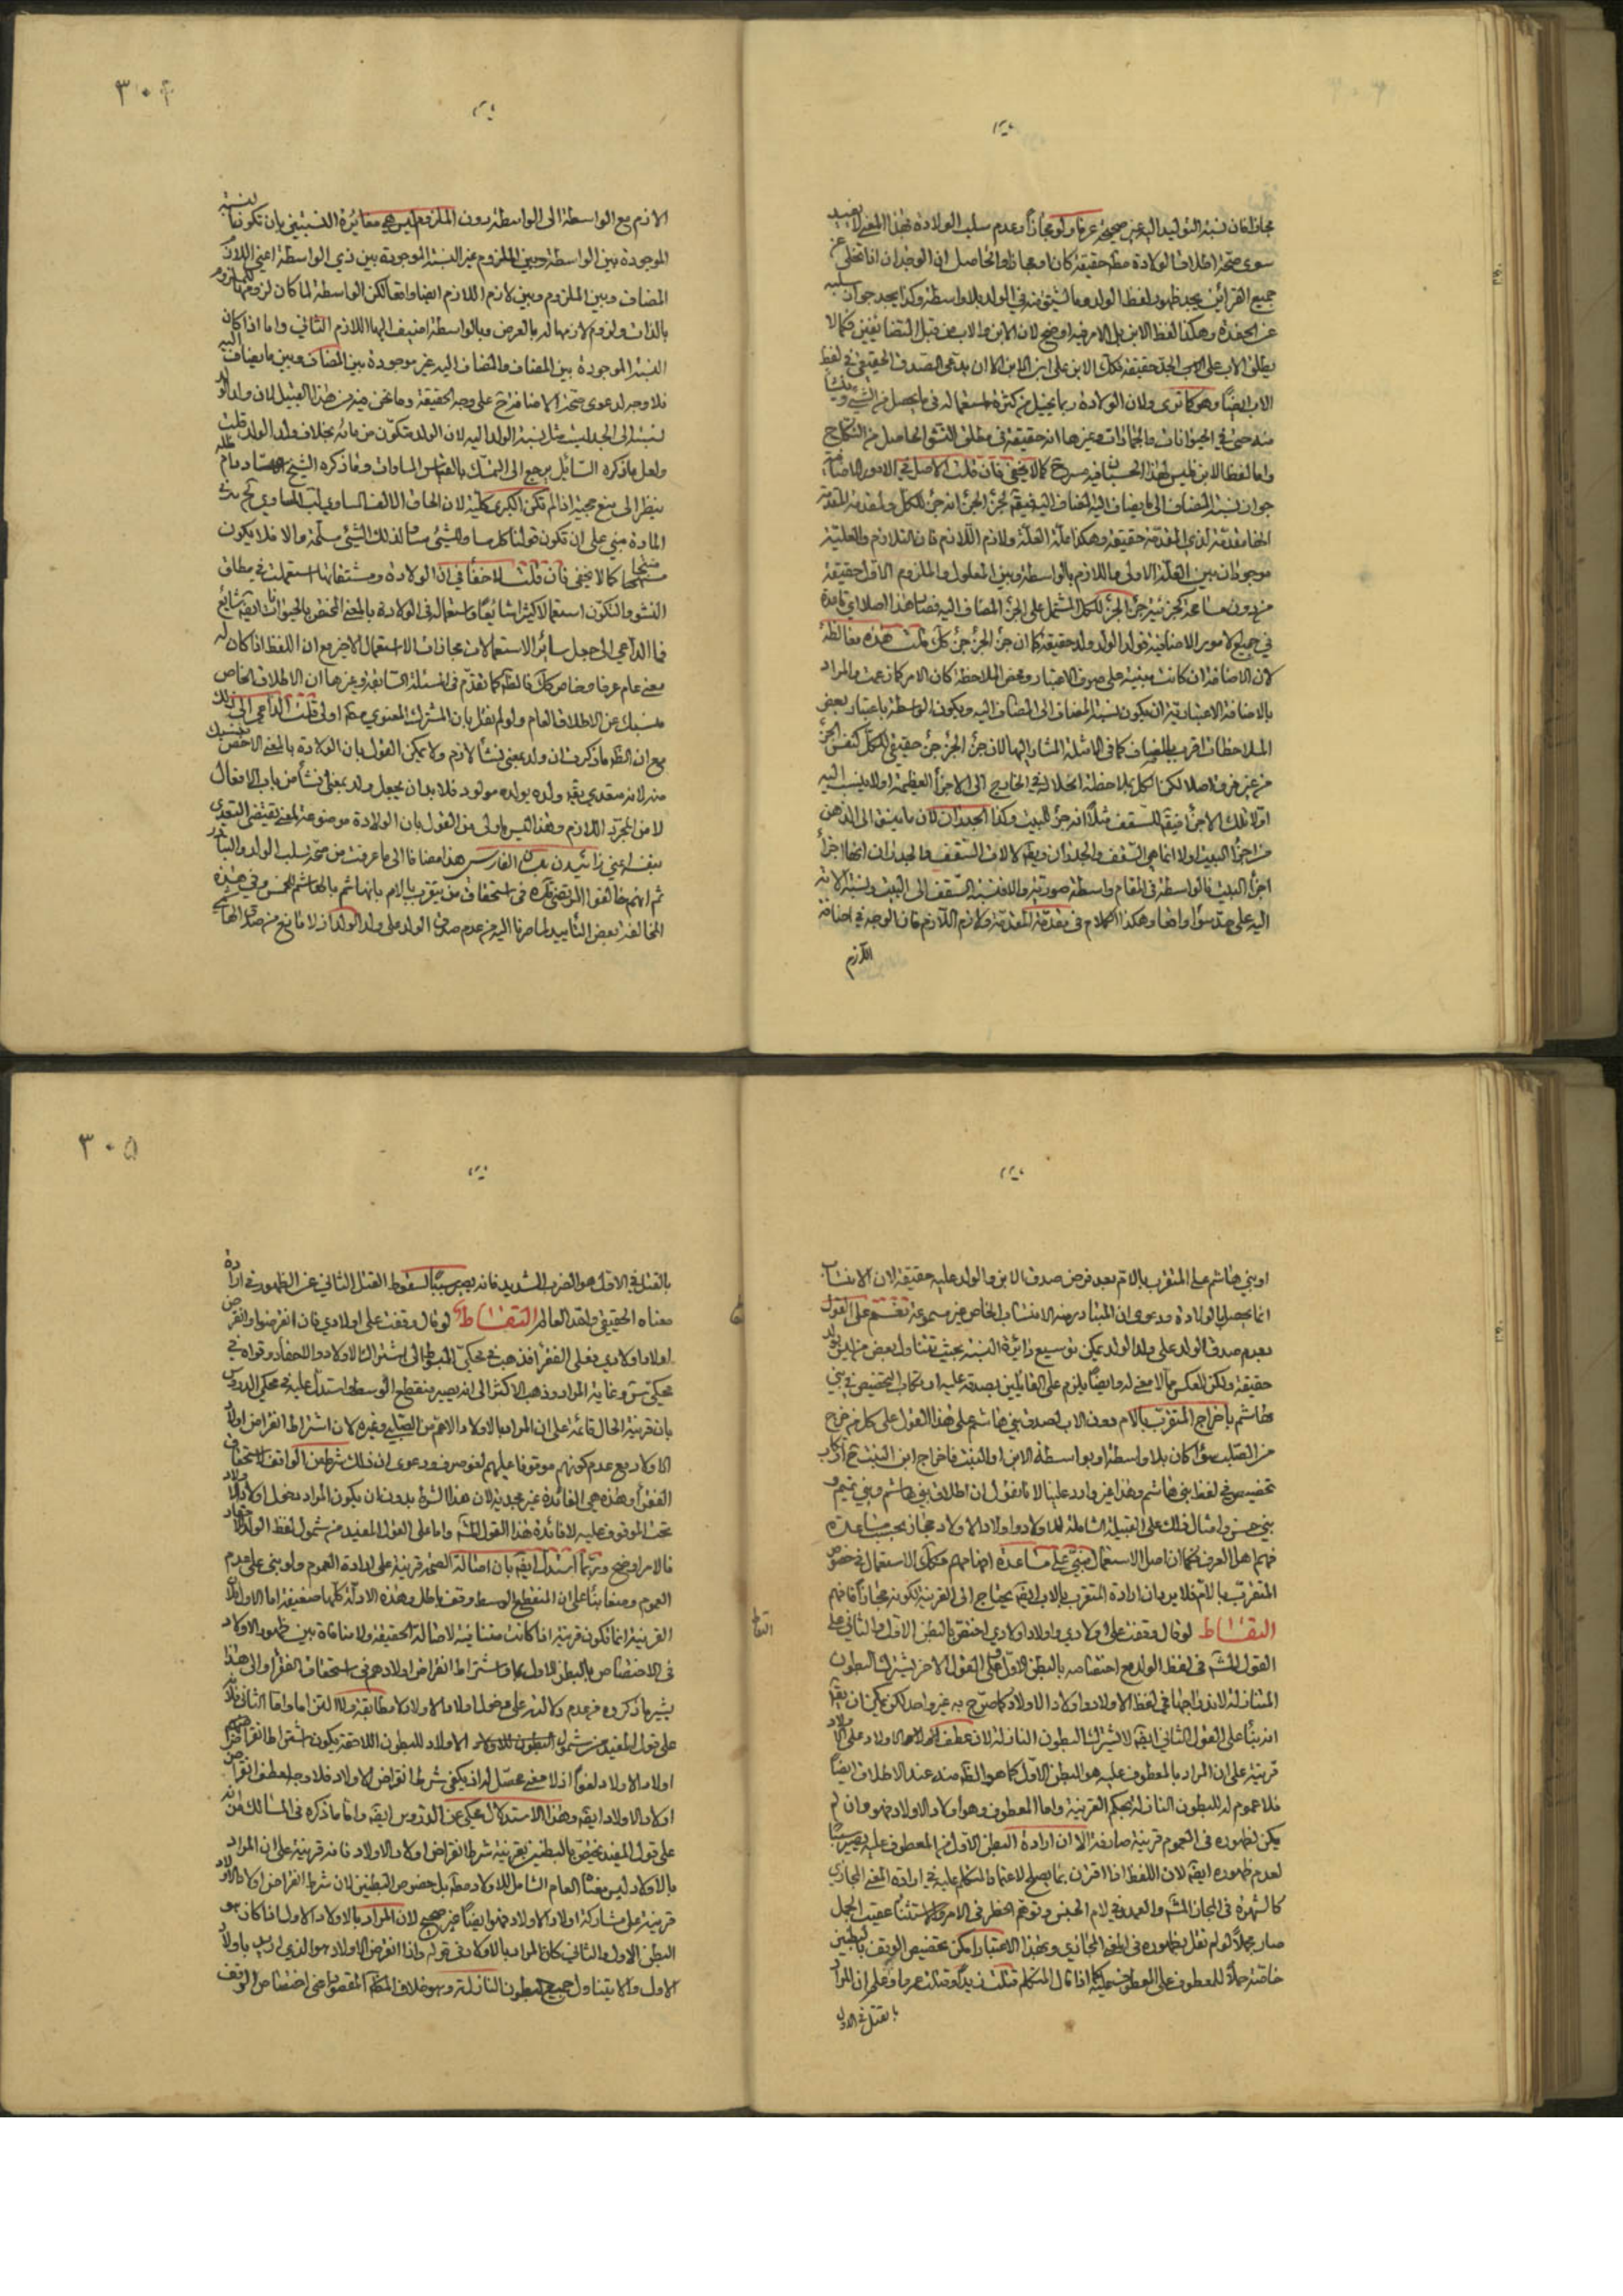 ٣٠٤
مجازا فان نسبة التوليد اليه غير صحيحة عرفا ولو مجازا وعدم سلب الولادة بهذا المعنى لا يفيد
سوى صحة اطلاق الولادة مطلقا حقيقة كان او مجازا والحاصل ان الوجدان اذا تخلى عن
جميع القرائن يجد ظهور لفظ الولد وما اشتق منه في الولد بلا واسطة وكذا يجد جواز سلبه
عن الحفدة وهكذا لفظ الابن بل الامر فيه اوضح لان الابن والاب من قبيل المتضايفين فكما لا
يطلق الاب على الجد حقيقة فكك الابن على ابن الابن الا ان يدعى الصدق الحقيقي في لفظ
الاب ايضا وهو كما ترى ولان الولادة ربما يتخيل من كثرة استعماله في ما يحصل من الشيء وينشأ
منه حتى في الحيوانات والجمادات وغيرها انه حقيقة في مطلق النشو الحاصل من النكاح
واما لفظ الابن فليس لهذا الحسبان فيه مسرح كما لا يخفى فان قلت الاصل في الامور الاضافية
جواز نسبة المضاف الى ما يضاف اليه المضاف اليه فيقال لجزء الجزء انه جزء للكل ولمقدمة المقدمة
انها مقدمة لذي المقدمة حقيقة وهكذا علة العلة ولازم اللازم فان التلازم والعلية
موجودان بين العلة الاولى واللازم بالواسطة وبين المعلول والملزوم الاول حقيقة
من دون مسامحة كجزئية جزء الجزء للكل المشتمل على الجزء المضاف اليه فصار هذا اصلا اي قاعدة
في جميع الامور الاضافية فولد الولد ولد حقيقة كما ان جزء الجزء جزء كك قلت هذه مغالطة
لان الاضافة ان كانت مبنية على صرف الاعتبار ومحض الملاحظة كان الامر كما زعمت والمراد
بالاضافة الاعتبارية ان يكون نسبة المضاف الى المضاف اليه ويكون الواسطة باعتبار بعض
الملاحظات اقرب للمضاف كما في الامثلة المشار اليها لان جزء الجزء جزء حقيقي للكل كنفس الجزء
من غير فرق اصلا لكن الكل بملاحظة انحلاله في الخارج الى الاجزاء العظيمة اولا ينسب اليه
اولا تلك الاجزاء فيقال للسقف مثلا انه جزء للبيت وكذا الجدران لان ما ينبو الى الذهن
من اجزاء البيت اولا انما هي السقف والجدران ويقال لآلات السقف والجدران انها اجزاء
اجزاء البيت فالواسطة في المقام واسطة صورية والا فنسبة السقف الى البيت ونسبة آلاته
اليه على حد سواء واقعا وهكذا الكلام في مقدمة المقدمة ولازم اللازم فان الوجه في اضافة
اللازم
الازم مع الواسطة الى الواسطة دون الملزوم ليس هي مغايرة النسبتين بان تكون النسبة
الموجودة بين الواسطة وبين الملزوم غير النسبة الموجودة بين ذي الواسطة اعني اللازم
المضاف وبين الملزوم وبين لازم اللازم ايضا واقعا لكن الواسطة لما كان لزومها للملزوم
بالذات ولزوم لازمها له بالعرض وبالواسطة اضيف اليها اللازم الثاني واما اذا كان
النسبة الموجودة بين المضاف والمضاف اليه غير موجودة بين المضاف وبين ما يضاف اليه
فلا وجه لدعوى صحة الاضافة ح على وجه الحقيقة وما نحن فيه من هذا القبيل لان ولد الولد
نسبته الى الجد ليست مثل نسبة الولد اليه لان الولد متكون من مائه بخلاف ولد الولد قلت
ولعل ما ذكره السائل يرجع الى التمسك بالقياس المساوات وما ذكره الشيخ الاستاد دام ظله
ينظر الى منع حجيته اذا لم تكن الكبرى كلية لان الحاق الالف المساوي لب المساوي لج في
المادة مبني على ان تكون قولنا كل مساو لشيء مساو لذلك الشيء مسلمة والا فلا يكون
منتجا كما لا يخفى فان قلت لا خفاء في ان الولادة ومشتقاتها استعملت في مطلق
النشو والتكون استعمالا كثيرا شايعا واستعماله في الولادة بالمعنى المختص بالحيوانات ايضا شايع
فما الداعي الى جعل سائر الاستعمالات مجازات الاستعمال الاخير مع ان اللفظ اذا كان له
معنى عام عرفا وخاص كك فالظاهر كما تقدم في المسئلة السابقة وغيرها ان الاطلاق الخاص
منسبك عن الاطلاق العام ولو لم نقل بان المشترك المعنوي مقدم اولى قلت الداعي الى ذلك
مع ان الظاهر ما ذكرت ان ولد بمعنى نشأ لازم ولا يمكن القول بان الولادة بالمعنى الاخص منسبك
منه لانه متعدي يقال ولده يولده مولود فلا بد ان يجعل ولد بمعنى انشأ من باب الافعال
لا من المجرد اللازم وهذا ليس باولى من القول بان الولادة موضوعة لمعنى يقتضي التعدي
بنفسه اعني زائيدن بلسان الفارسي هذا مضافا الى ما عرفت من صحة سلب الولد والتبادر
ثم انهم خالفوا المرتضى ره في استحقاق من يتقرب بالام بالهاشم بالهاشم للخمس وفي هذه
المخالفة بعض التأييد لما صرنا اليه من عدم صدق الولد على ولد الولد اذ لا مانع من صدق الهاشمي
٣٠٥
او بني هاشم على المتقرب بالام بعد فرض صدق الابن والولد عليه حقيقة لان الانتساب
انما يحصل بالولادة ودعوى ان المتبادر منه الانتساب الخاص غير مسموعة نعم على القول
بعدم صدق الولد على ولد الولد يمكن توسيع دائرة النسبة بحيث يتناول بعض من ليس بولد
حقيقة ولكن العكس مما لا معنى له وايضا يلزم على القائلين بصدقه عليه ارتكاب التخصيص في بني
هاشم باخراج المتقرب بالام دون الاب لصدق بني هاشم على هذا القول على كل من خرج
من الصلب سواء كان بلا واسطة او بواسطة الابن او البنت فاخراج ابن البنت ح ارتكاب
تخصيص في لفظ بني هاشم وهذا غير وارد علينا لانا نقول ان اطلاق بني هاشم وبني تميم و
بني حسن وامثال ذلك على القبيلة الشاملة للاولاد واولاد الاولاد مجاز بحسب مساعدة
فهم اهل العرف فكما ان اصل الاستعمال مبني على مساعدة افهامهم فكذلك الاستعمال في خصوص
المتقرب بالاب فلا يرد ان ارادة المتقرب بالاب ايضا يحتاج الى القرينة لكونه مجازا فافهم
التقاط لو قال وقفت على اولادي واولاد اولادي اختص بالبطن الاول والثاني على
القول المشهور في لفظ الولد مع اختصاصه بالبطن الاول وعلى القول الاخر يشترك البطون
المتنازلة لاندراجها في لفظ الاولاد واولاد الاولاد كما صرح به غير واحد لكن يمكن ان يقال
انه بناء على القول الثاني ايضا لا يشترك البطون النازلة لان عطف اولاد الاولاد على الاولاد
قرينة على ان المراد بالمعطوف عليه هو البطن الاول كما هو الظاهر منه عند الاطلاق ايضا
فلا عموم له للبطون النازلة بحكم القرينة واما المعطوف وهو اولاد الاولاد فهو وان لم
يكن لظهوره في العموم قرينة صارفة الا ان ارادة البطن الاول من المعطوف عليه يصير سببا
لعدم ظهوره ايضا لان اللفظ اذا اقترن بما يصلح لاعتماد المتكلم عليه في ارادة المعنى المجازي
كالشهرة في المجاز المشهور والعهد في لام الجنس وتوهم الحظر في الامر والاستثناء عقيب الجمل
صار مجملا لو لم نقل بظهوره في المعنى المجازي وبهذا الاعتبار امكن تخصيص الوقف بالبطنين
خاصة حملا للمعطوف على المعطوف عليه كما اذا قال المتكلم قتلت زيدا وقتلت عمروا وعلم ان المراد
بالقتل في الاول
التقاط
بالقتل في الاول هو الضرب الشديد فانه يصير سببا لسقوط القتل الثاني عن الظهور في ارادة
معناه الحقيقي والله العالم التقاط لو قال وقفت على اولادي فان انقرضوا وانقرض
اولاد اولادي فعلى الفقراء فذهب في محكي المبسوط الى اشتراك الاولاد والاحفاد وقواه في
محكي س وغاية المراد وذهب الاكثر الى انه يصير منقطع الوسط استدل عليه في محكي الدروس
بان قرينة الحال قائمة على ان المراد بالاولاد الاعم من الصلبي وغيره لان اشتراط انقراض اولاد
الاولاد مع عدم كونهم موقوفا عليهم لغو صرف ودعوى ان ذلك شرط من الواقف استحقاق
الفقراء وهذه هي الفائدة غير مجدية لان هذا الشرط بدون ان يكون المراد دخول اولاد الاولاد
تحت الموقوف عليه لا فائدة هذا القول المشهور واما على القول المفيد من شمول لفظ الولد للاحفاد
فالامر اوضح وربما استدل ايضا بان اصالة الصحة قرينة على ارادة العموم ولو بني على عدم
العموم ومضافا على ان المنقطع الوسط وقف باطل وهذه الادلة كلها ضعيفة اما الاول فلان
القرينة انما تكون قرينة اذا كانت منافية لاصالة الحقيقة ولا منافاة بين ظهور الاولاد
في الاختصاص بالبطن الاول وبين اشتراط انقراض اولادهم في استحقاق الفقراء والى هذا
يشير ما ذكروه من عدم دلالته على دخول اولاد الاولاد مطابقة ولا التزاما واما الثاني فلان
على قول المفيد من شمول الاولاد للبطون اللاحقة يكون اشتراط انقراض
اولاد الاولاد لغوا اذ لا معنى محصل له اذ يكفي شرط انقراض الاولاد فلا وجه لعطف انقراض
اولاد الاولاد ايضا وهذا الاستدلال محكي عن الدروس ايضا واما ما ذكره في المسالك من انه
على قول المفيد يختص بالبطنين بقرينة شرط انقراض اولاد الاولاد فانه قرينة على ان المراد
بالاولاد ليس معنى العام الشامل للاولاد مطلقا بل خصوص البطنين لان شرط انقراض اولاد الاولاد
قرينة على مشاركة اولاد الاولاد فهو ايضا غير صحيح لان المراد بالاولاد الاول اذا كان هو
البطن الاول والثاني كان المراد بالاولاد في قوله واذا انقرض الاولاد هو الذي اريد باولاد
الاول والا يتناول جميع البطون النازلة وهو خلاف الحكم المقصود اعني اختصاص الوقف